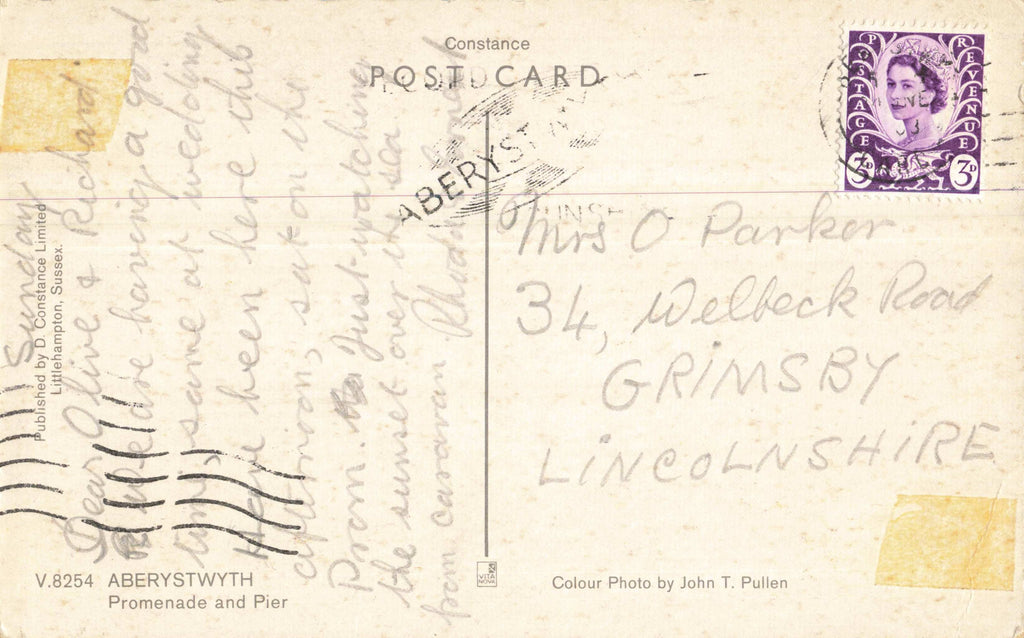 Constance
POST CARD
POSTAGE REVENUE
3D 3D
ABERYSTWYTH
Sunday
Dear Olive & Richard.
We are having a good
time, same at wedding
Have been here this
afternoon, sat on the
Prom. Just watching
the sunset over the sea
from caravan Rhoda
Mrs O Parker
34, Welbeck Road
GRIMSBY
LINCOLNSHIRE
Published by D. Constance Limited
Littlehampton, Sussex.
V.8254 ABERYSTWYTH
Promenade and Pier
VITA
NOVA
Colour Photo by John T. Pullen